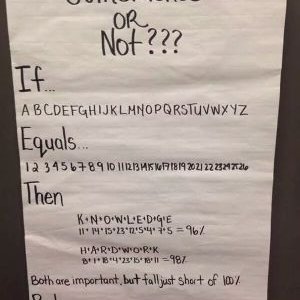 OR
Not???
If...
ABCDEFGHIJKLMNOPQRSTUVWXYZ
Equals...
1 2 3 4 5 6 7 8 9 10 11 12 13 14 15 16 17 18 19 20 21 22 23 24 25 26
Then
K+N+O+W+L+E+D+G+E
11+14+15+23+12+5+4+7+5=96%
H+A+R+D+W+O+R+K
8+1+18+4+23+15+18+11=98%
Both are important, but fall just short of 100%